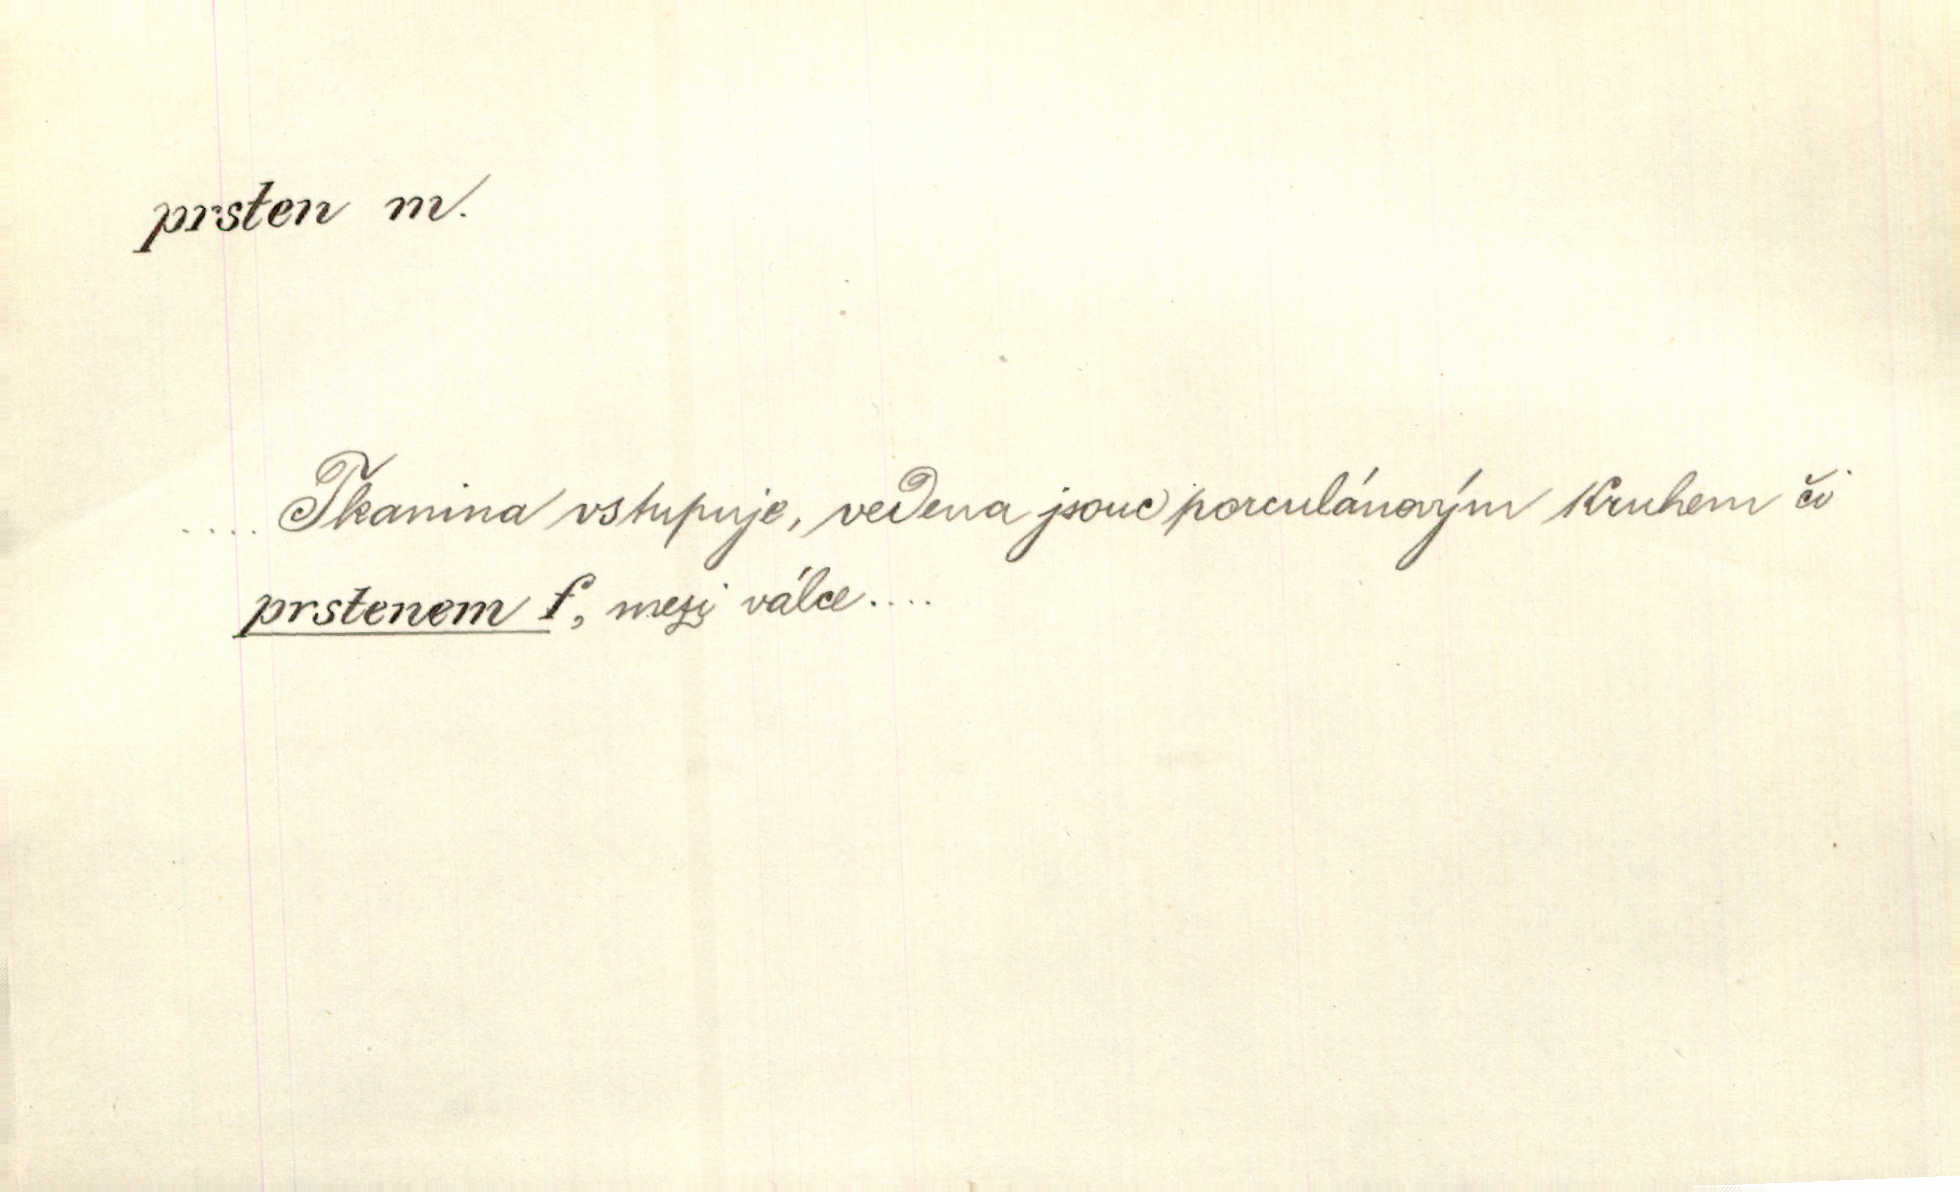 prsten m.
.... Tkanina vstupuje, vedena jsouc porculánovým kruhem či
prstenem f, mezi válce....